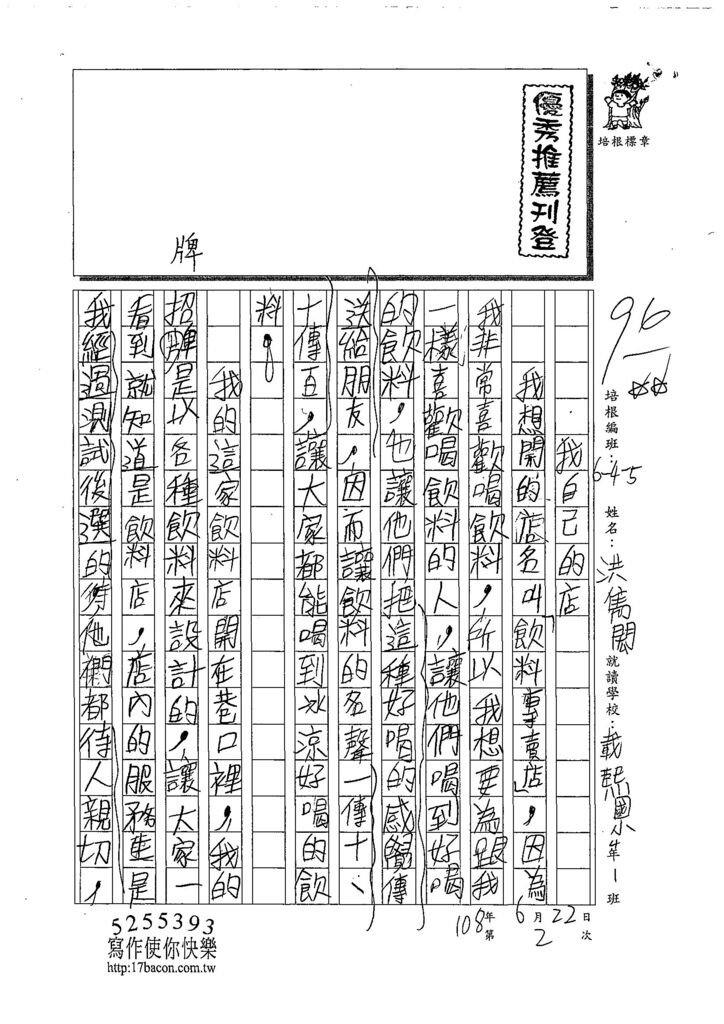 優秀推薦刊登
培根標章
96
培根編班：645 姓名：洪雋閎 就讀學校：載熙國小 年1班
108年6月22日
第2次
我自己的店
我想開的店名叫「飲料專賣店」，因為
我非常喜歡喝飲料，所以我想要為跟我
一樣喜歡喝飲料的人，讓他們喝到好喝
的飲料，也讓他們把這種好喝的感覺傳
送給朋友，因而讓飲料的名聲一傳十、
十傳百，讓大家都能喝到冰涼好喝的飲
料。
我的這家飲料店開在巷口裡，我的
招牌是以各種飲料來設計的，讓大家一
看到就知道是飲料店，店內的服務生是
我經過測試後選的，他們都待人親切，
牌
5255393
寫作使你快樂
http:17bacon.com.tw